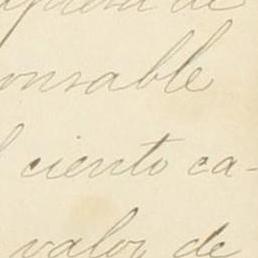 de
onsable
l ciento ca-
valor de